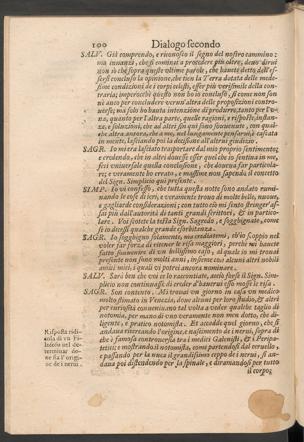 100 Dialogo secondo
SALV. Già comprendo, e riconosco il segno del nostro cammino:
ma innanzi, che si cominci a procedere più oltre, devo dirvi
non sò che sopra queste ultime parole, che havete detto dell'es-
sersi concluso la opinione, che tien la Terra dotata delle mede-
sime condizioni de i corpi celesti, esser più verisimile della con-
traria; imperocchè questo non hò io concluso, sì come non son
nè anco per concludere verun'altra delle proposizioni contro-
verse; ma solo hò havuta intenzione di produrre tanto per l'v-
na, quanto per l'altra parte, quelle ragioni, e risposte, instan-
ze, e soluzioni, che ad altri sin quì sono souuenute, con qual-
che altra ancora, che à me, nel lungamente pensarui, è cascata
in mente, lasciando poi la decisione all'altrui giudizio.
SAGR. Io mi era lasciato trasportare dal mio proprio sentimento;
e credendo, che in altri douesse esser quel che io sentiua in me,
feci vniuersale quella conclusione, che doueua far particola-
re; e veramente hò errato, e massime non sapendo il concetto
del Sign. Simplicio quì presente.
SIMP. Io vi confesso, che tutta questa notte sono andato rumi-
nando le cose di ieri, e veramente trouo di molto belle, nuoue,
e gagliarde considerazioni; con tutto ciò mi sento stringer as-
sai più dall'autorità di tanti grandi scrittori, & in partico-
lare. Voi scotete la testa Sign. Sagredo, e sogghignate, come
se io dicessi qualche grande esorbitanza.
SAGR. Io sogghigno solamente, ma crediatemi, ch'io scoppio nel
voler far forza di ritener le risa maggiori, perchè mi hauete
fatto souuenire di vn bellissimo caso, al quale io mi trouai
presente non sono molti anni, insieme con alcuni altri nobili
amici miei, i quali vi potrei ancora nominare.
SALV. Sarà ben che voi ce lo raccontiate, acciò forse il Sign. Sim-
plicio non continuasse di creder d'hauerui esso mosse le risa.
SAGR. Son contento. Mi trouai vn giorno in casa vn medico
molto stimato in Venezia, doue alcuni per loro studio, & altri
per curiosità conueniuano tal volta a veder qualche taglio di
notomia, per mano di vno veramente non men dotto, che di-
ligente, e pratico notomista. Et accadde quel giorno, che si
andaua ricercando l'origine, e nascimento de i nerui, sopra di
che è famosa controuersia tra i medici Galenisti, & i Peripa-
tetici; e mostrando il notomista, come partendosi dal ceruello,
e passando per la nuca il grandissimo ceppo de i nerui, si an-
daua poi distendendo per la spinale, e diramandosi per tutto
il corpo;
Risposta ridi-
cola di vn Fi-
losofo nel de-
terminar do-
ue sia l'origi-
ne de i nerui.